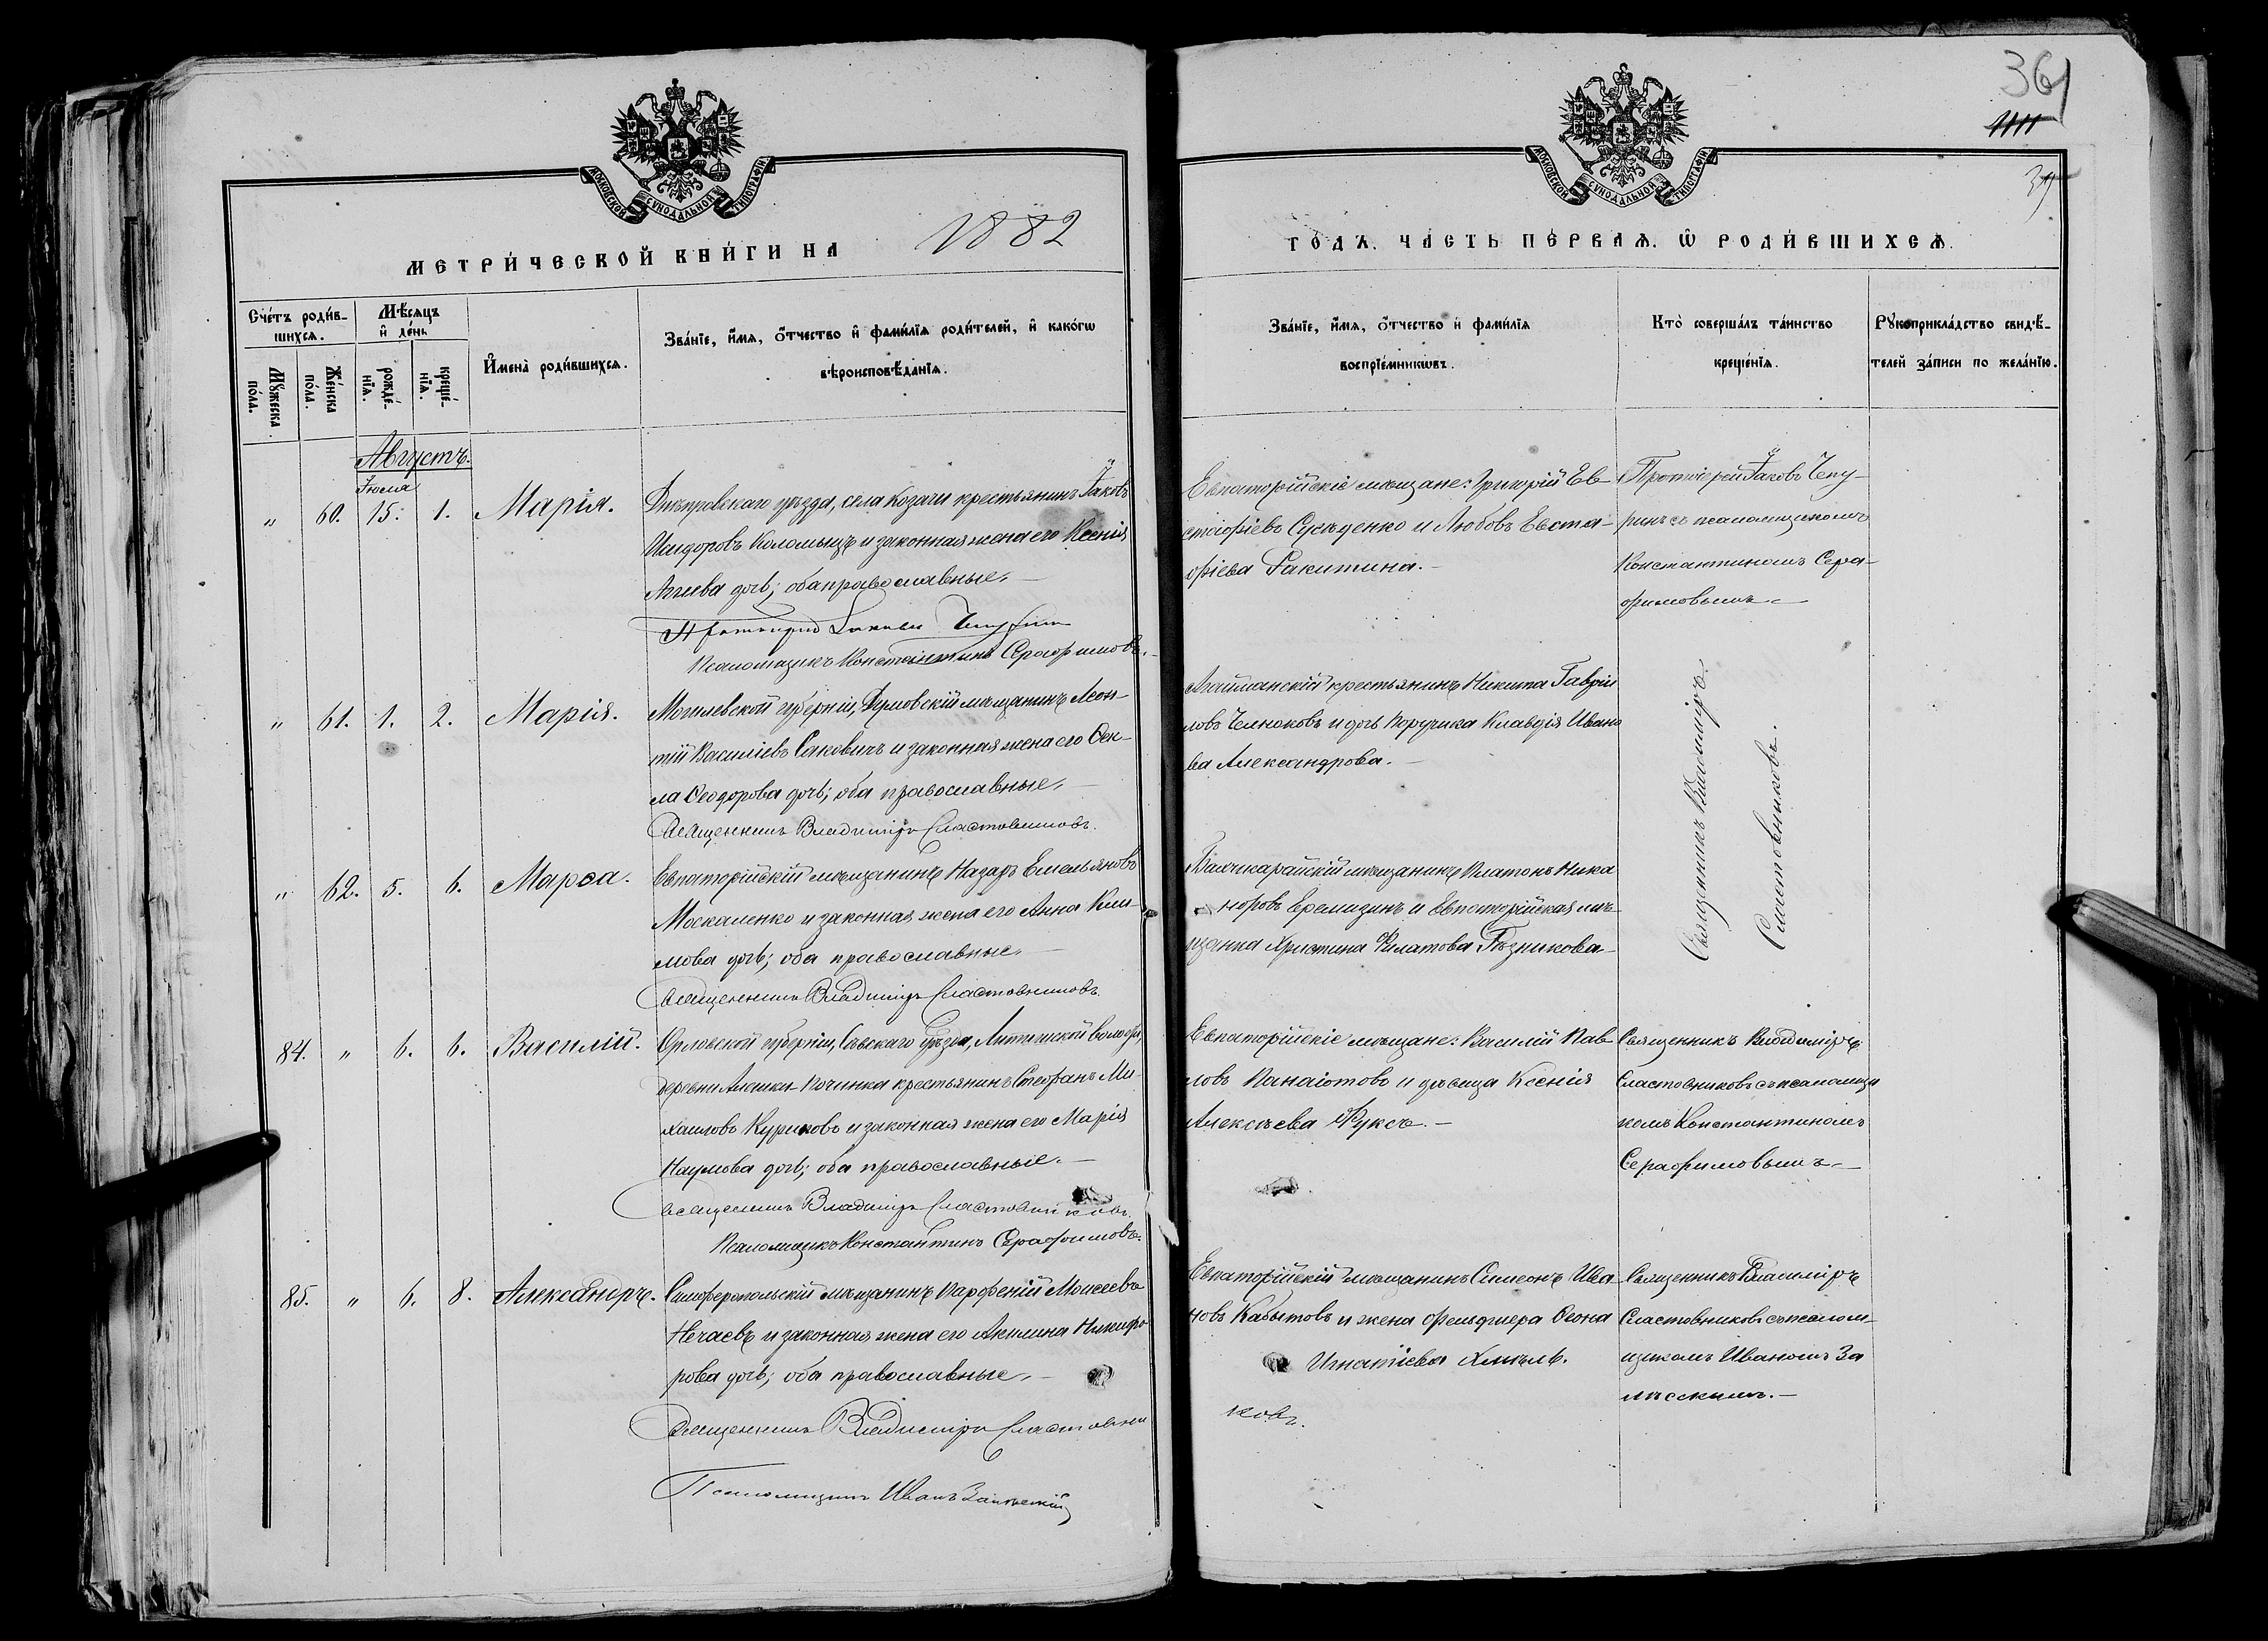 36
1111
39
МОСКОВСКОЙ СѴНОДАЛЬНОЙ ТИПОГРАФІИ
МОСКОВСКОЙ СѴНОДАЛЬНОЙ ТИПОГРАФІИ
МЕТРИ́ЧЕСКОЙ КНИ́ГИ НА 1882
ГО́ДЪ. ЧА́СТЬ ПЕ́РВАЯ. Ѡ РОДИ́ВШИХСЯ.
Сче́тъ роди́в-
шихся.
Мꙋ́жеска по́ла.
Же́нска по́ла.
Мѣ́сяцъ
и де́нь
рожде́-
нїя.
креще́-
нїя.
Имена̀ роди́вшихся.
Зва́нїе, и́мя, о́тчество и фами́лїя роди́телей, и како́гѡ
вѣроисповѣ́данїя.
Зва́нїе, и́мя, о́тчество и фами́лїя
воспрїе́мникѡвъ.
Кто̀ соверша́лъ та́инство
креще́нїя.
Рꙋкоприкла́дство свидѣ́-
телей за́писи по жела́нїю.
Августъ.
Іюля
" 60. 15. 1. Марія.
Днѣпровскаго уѣзда, села Козачи крестьянинъ Іаковъ
Исидоровъ Коломыцъ и законная жена его Ксенія
Агиева дочь; оба православные.—
Протоиерей Іаковъ Чепуринъ
Псаломщикъ Константинъ Серафимовъ.
Евпаторійскіе мѣщане: Григорій Ев-
стафіевъ Сусѣденко и Любовь Евста-
фіева Ракитина.—
Протоіерей Іаковъ Чепу-
ринъ съ псаломщикомъ
Константиномъ Сера-
фимовымъ—
" 61. 1. 2. Марія.
Могилевской губерніи, мѣщанинъ Леон-
тій Василіевъ Саковичъ и законная жена его Ѳек-
ла Ѳеодорова дочь; оба православные.—
Священникъ Владиміръ Сластовниковъ.
Агайманскій крестьянинъ Никита Гаврiи
ловъ Челноковъ и дочь Поручика Клавдія Ивано
ва Александрова.—
Священникъ Владиміръ
Сластовниковъ.
" 62. 5. 6. Марѳа.
Евпаторійскій мѣщанинъ Назаръ Емельяновъ
Москаленко и законная жена его Анна Кли-
мова дочь; оба православные.—
Священникъ Владиміръ Сластовниковъ.
мѣщанинъ Платонъ Ника
норовъ Еремизинъ и Евпаторійская мѣ-
щанка Христина Филатова
84. " 6. 6. Василій.
Орловской губерніи, Сѣвскаго уѣзда, волости,
деревни Починка крестьянинъ Стефанъ Ми-
хаиловъ Куриковъ и законная жена его Марія
Наумова дочь; оба православные.—
Священникъ Владиміръ Сластовниковъ.
Псаломщикъ Константинъ Серафимовъ.
Евпаторійскіе мѣщане: Василій Пав-
ловъ Панаіотовъ и дѣвица Ксенія
Алексѣева Фуксъ.—
Священникъ Владиміръ
Сластовниковъ съ псаломщи
комъ Константиномъ
Серафимовымъ—
85. " 6. 8. Александръ.
Симферопольскій мѣщанинъ Парфеній Моисеевъ
Нечаевъ и законная жена его Акилина Никифо
рова дочь; оба православные.—
Священникъ Владиміръ Сластовни
ковъ.
Псаломщикъ Иванъ Залѣсскій
Евпаторійскій мѣщанинъ Симеонъ Ива
новъ Кабытовъ и жена фельдшера Ѳеона
Игнатіева Хмѣль.
Священникъ Владиміръ
Сластовниковъ съ псалом-
щикомъ Иваномъ За
лѣсскимъ.—